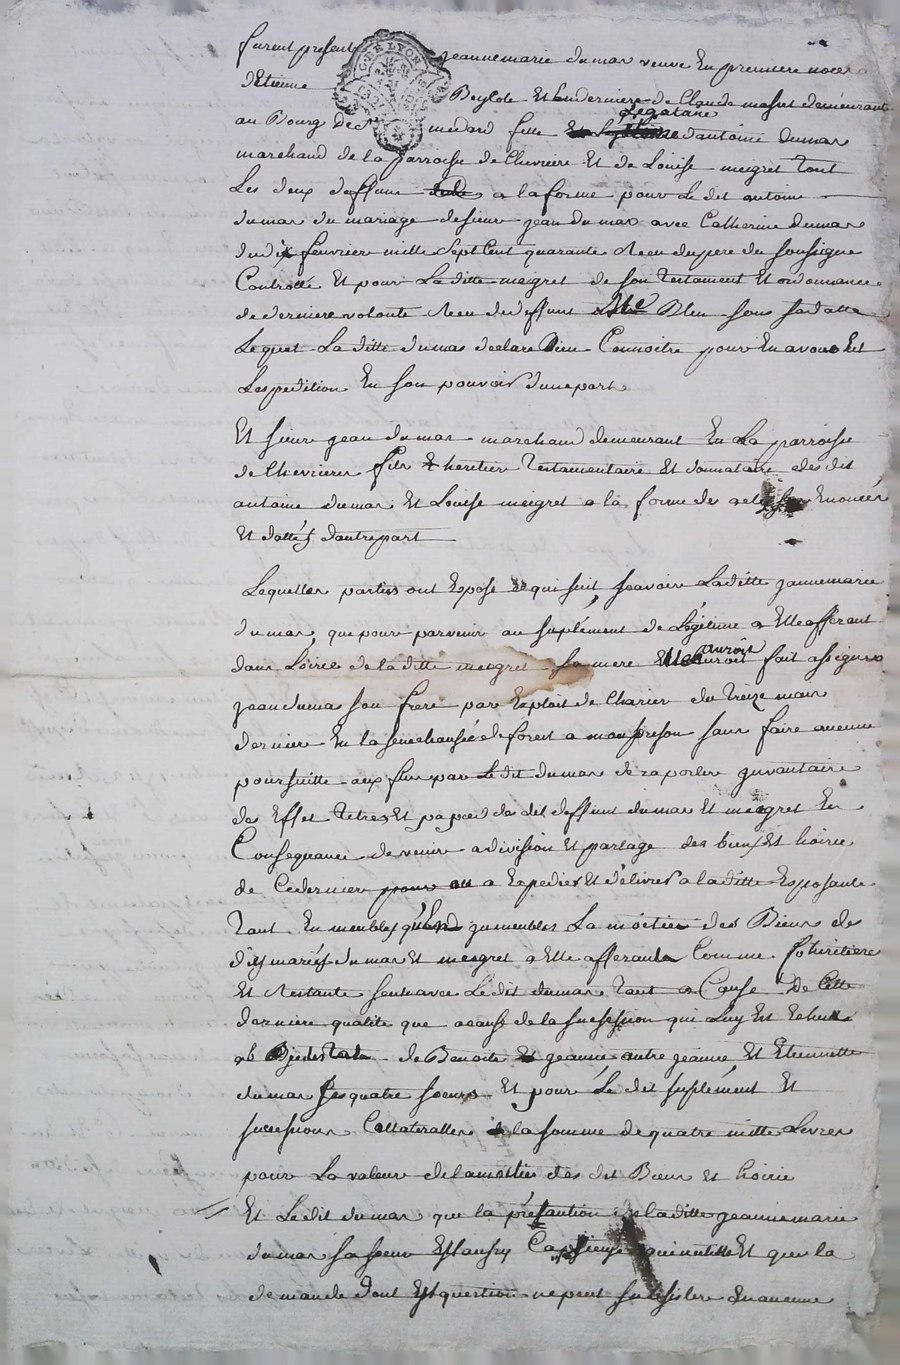 furent presents jeannemarie dumas veuve En premiere noces
d'Etienne Beylote Et En derniere de Claude masset demeurante
au Bourg de St medard fille Legataire d'antoine dumas
marchand de la parroisse de Chevriere Et de Louise meigret tous
Les deux deffunt a la forme pour Le dit antoine
dumas du mariage de sieur jean dumas avec Catherine dumas
du dix fevrier mille sept Cent quarante Receu du pere du soussigne
Controllé Et pour Laditte meigret de son testament Et ordonnance
de derniere volonté Receu de deffunt Me Blein sous sa datte
Lequel La ditte dumas declare Bien Connoitre pour En avoir
L'espedition En son pouvoir d'une part
Et sieur jean dumas marchand demeurant En La parroisse
de Chevrieres fils & heritier testamentaire Et donnataire des dit
antoine dumas Et Louise meigret a la forme des actes Enoncés
Et dattés d'autre part
Lequelles parties ont Exposé ce qui suit scavoir Laditte jannemarie
dumas, que pour parvenir au suplément de Légitime a Elle afferant
dans L'oirie de la ditte meigret sa mere Elle auroit fait assigner
jean dumas son frere par Exploit de Charier du treize mars
dernier En la senechaussée de forest a monbrison sans faire aucune
poursuitte aux fins par Le dit dumas de raporter jnvantaire
des Effet titres Et papiers des dit deffunt dumas Et meigret En
Consequance de venir a division Et partage des biens Et hoirie
de Cedernier pour a Expedier Et delivrer a laditte Exposante
tant En meubles qu'En jmmeubles La moitié des Biens des
dis mariés dumas Et meigret a Elle afferante Comme Coheritiere
Et Restante seule avec Le dit dumas tant a Cause de Cette
derniere qualité que a cause de la succession qui Luy Est Echue
ab jntestat de Benoite jeanne autre jeanne Et Etiennette
dumas ses quatre soeurs Et pour Le dit suplément Et
successions Collateralles la somme de quatre mille Livres
pour La valeur de la moitié des dit Biens et hoirie
Et Ledit dumas que la de laditte jeannemarie
dumas sa soeur Est aussy Captieuse Et que la
demande dont Est question ne peut subsister En aucune